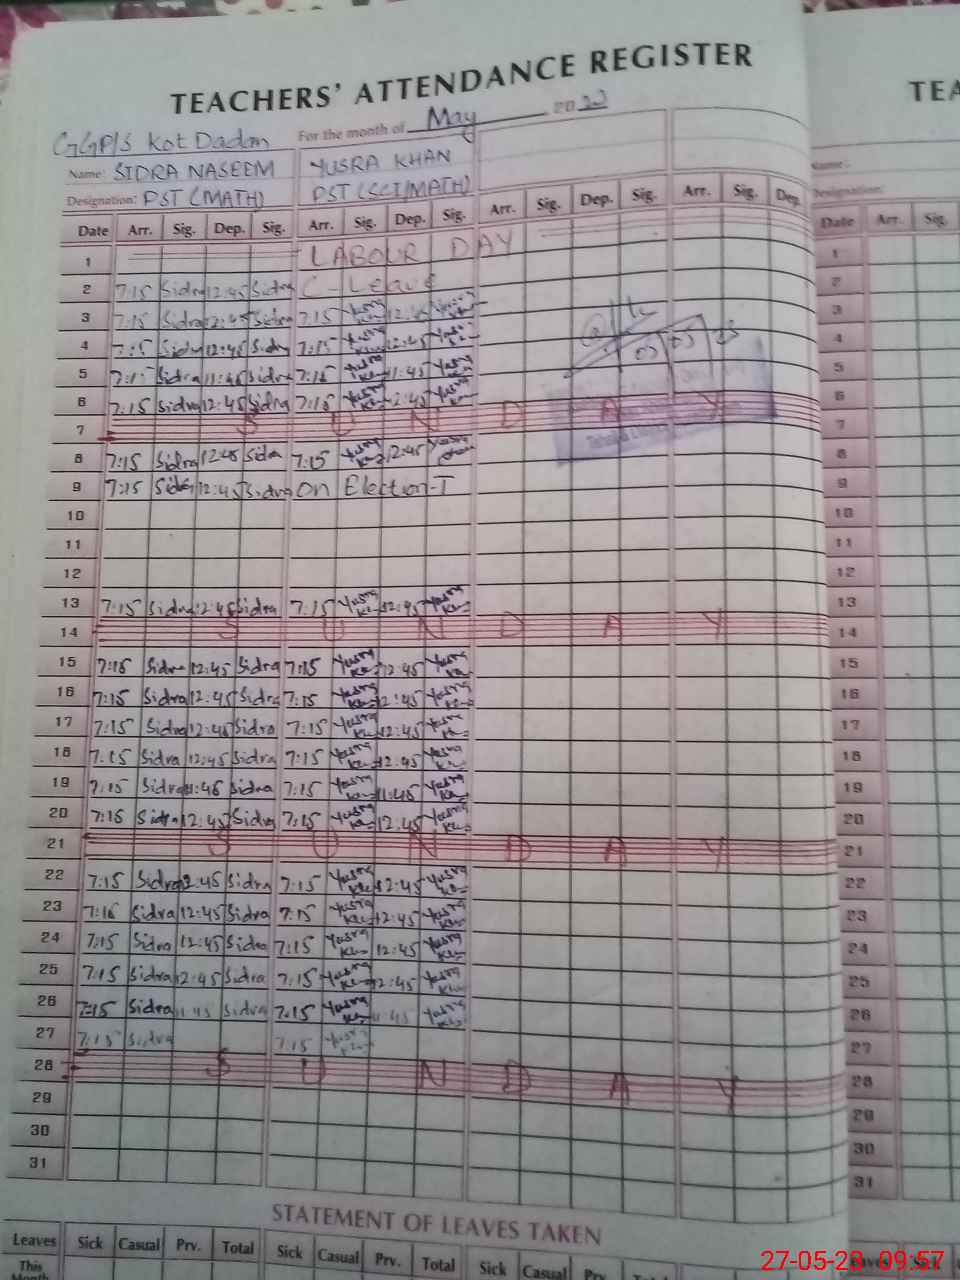 TEACHERS' ATTENDANCE REGISTER
GGP/S Kot Dadan For the month of May 2023
Name: SIDRA NASEEM YUSRA KHAN
Designation: PST (MATH) PST (SCI/MATH)
Date Arr. Sig. Dep. Sig. Arr. Sig. Dep. Sig. Arr. Sig. Dep. Sig. Arr. Sig. Dep.
1 LABOUR DAY
2 7:15 Sidra 12:45 Sidra C-Leave
3 7:15 Sidra 12:45 Sidra 7:15 Yusra 12:45 Yusra
4 7:15 Sidra 12:45 Sidra 7:15 Yusra 12:45 Yusra
5 7:15 Sidra 11:45 Sidra 7:15 Yusra 11:45 Yusra
6 7:15 Sidra 12:45 Sidra 7:15 Yusra 12:45 Yusra
7 SUNDAY
8 7:15 Sidra 12:45 Sidra 7:15 Yusra 12:45 Yusra
9 7:15 Sidra 12:45 Sidra On Election-T
10
11
12
13 7:15 Sidra 12:45 Sidra 7:15 Yusra 12:45 Yusra
14 SUNDAY
15 7:15 Sidra 12:45 Sidra 7:15 Yusra 12:45 Yusra
16 7:15 Sidra 12:45 Sidra 7:15 Yusra 12:45 Yusra
17 7:15 Sidra 12:45 Sidra 7:15 Yusra 12:45 Yusra
18 7:15 Sidra 12:45 Sidra 7:15 Yusra 12:45 Yusra
19 7:15 Sidra 11:45 Sidra 7:15 Yusra 11:45 Yusra
20 7:15 Sidra 12:45 Sidra 7:15 Yusra 12:45 Yusra
21 SUNDAY
22 7:15 Sidra 12:45 Sidra 7:15 Yusra 12:45 Yusra
23 7:15 Sidra 12:45 Sidra 7:15 Yusra 12:45 Yusra
24 7:15 Sidra 12:45 Sidra 7:15 Yusra 12:45 Yusra
25 7:15 Sidra 12:45 Sidra 7:15 Yusra 12:45 Yusra
26 7:15 Sidra 11:45 Sidra 7:15 Yusra 11:45 Yusra
27 7:15 Sidra 7:15 Yusra
28 SUNDAY
29
30
31
STATEMENT OF LEAVES TAKEN
Leaves Sick Casual Prv. Total Sick Casual Prv. Total Sick Casual Prv. Total
This Month
TEA
Name:
Designation:
Date Arr. Sig.
1
2
3
4
5
6
7
8
9
10
11
12
13
14
15
16
17
18
19
20
21
22
23
24
25
26
27
28
29
30
31
27-05-23 09:57